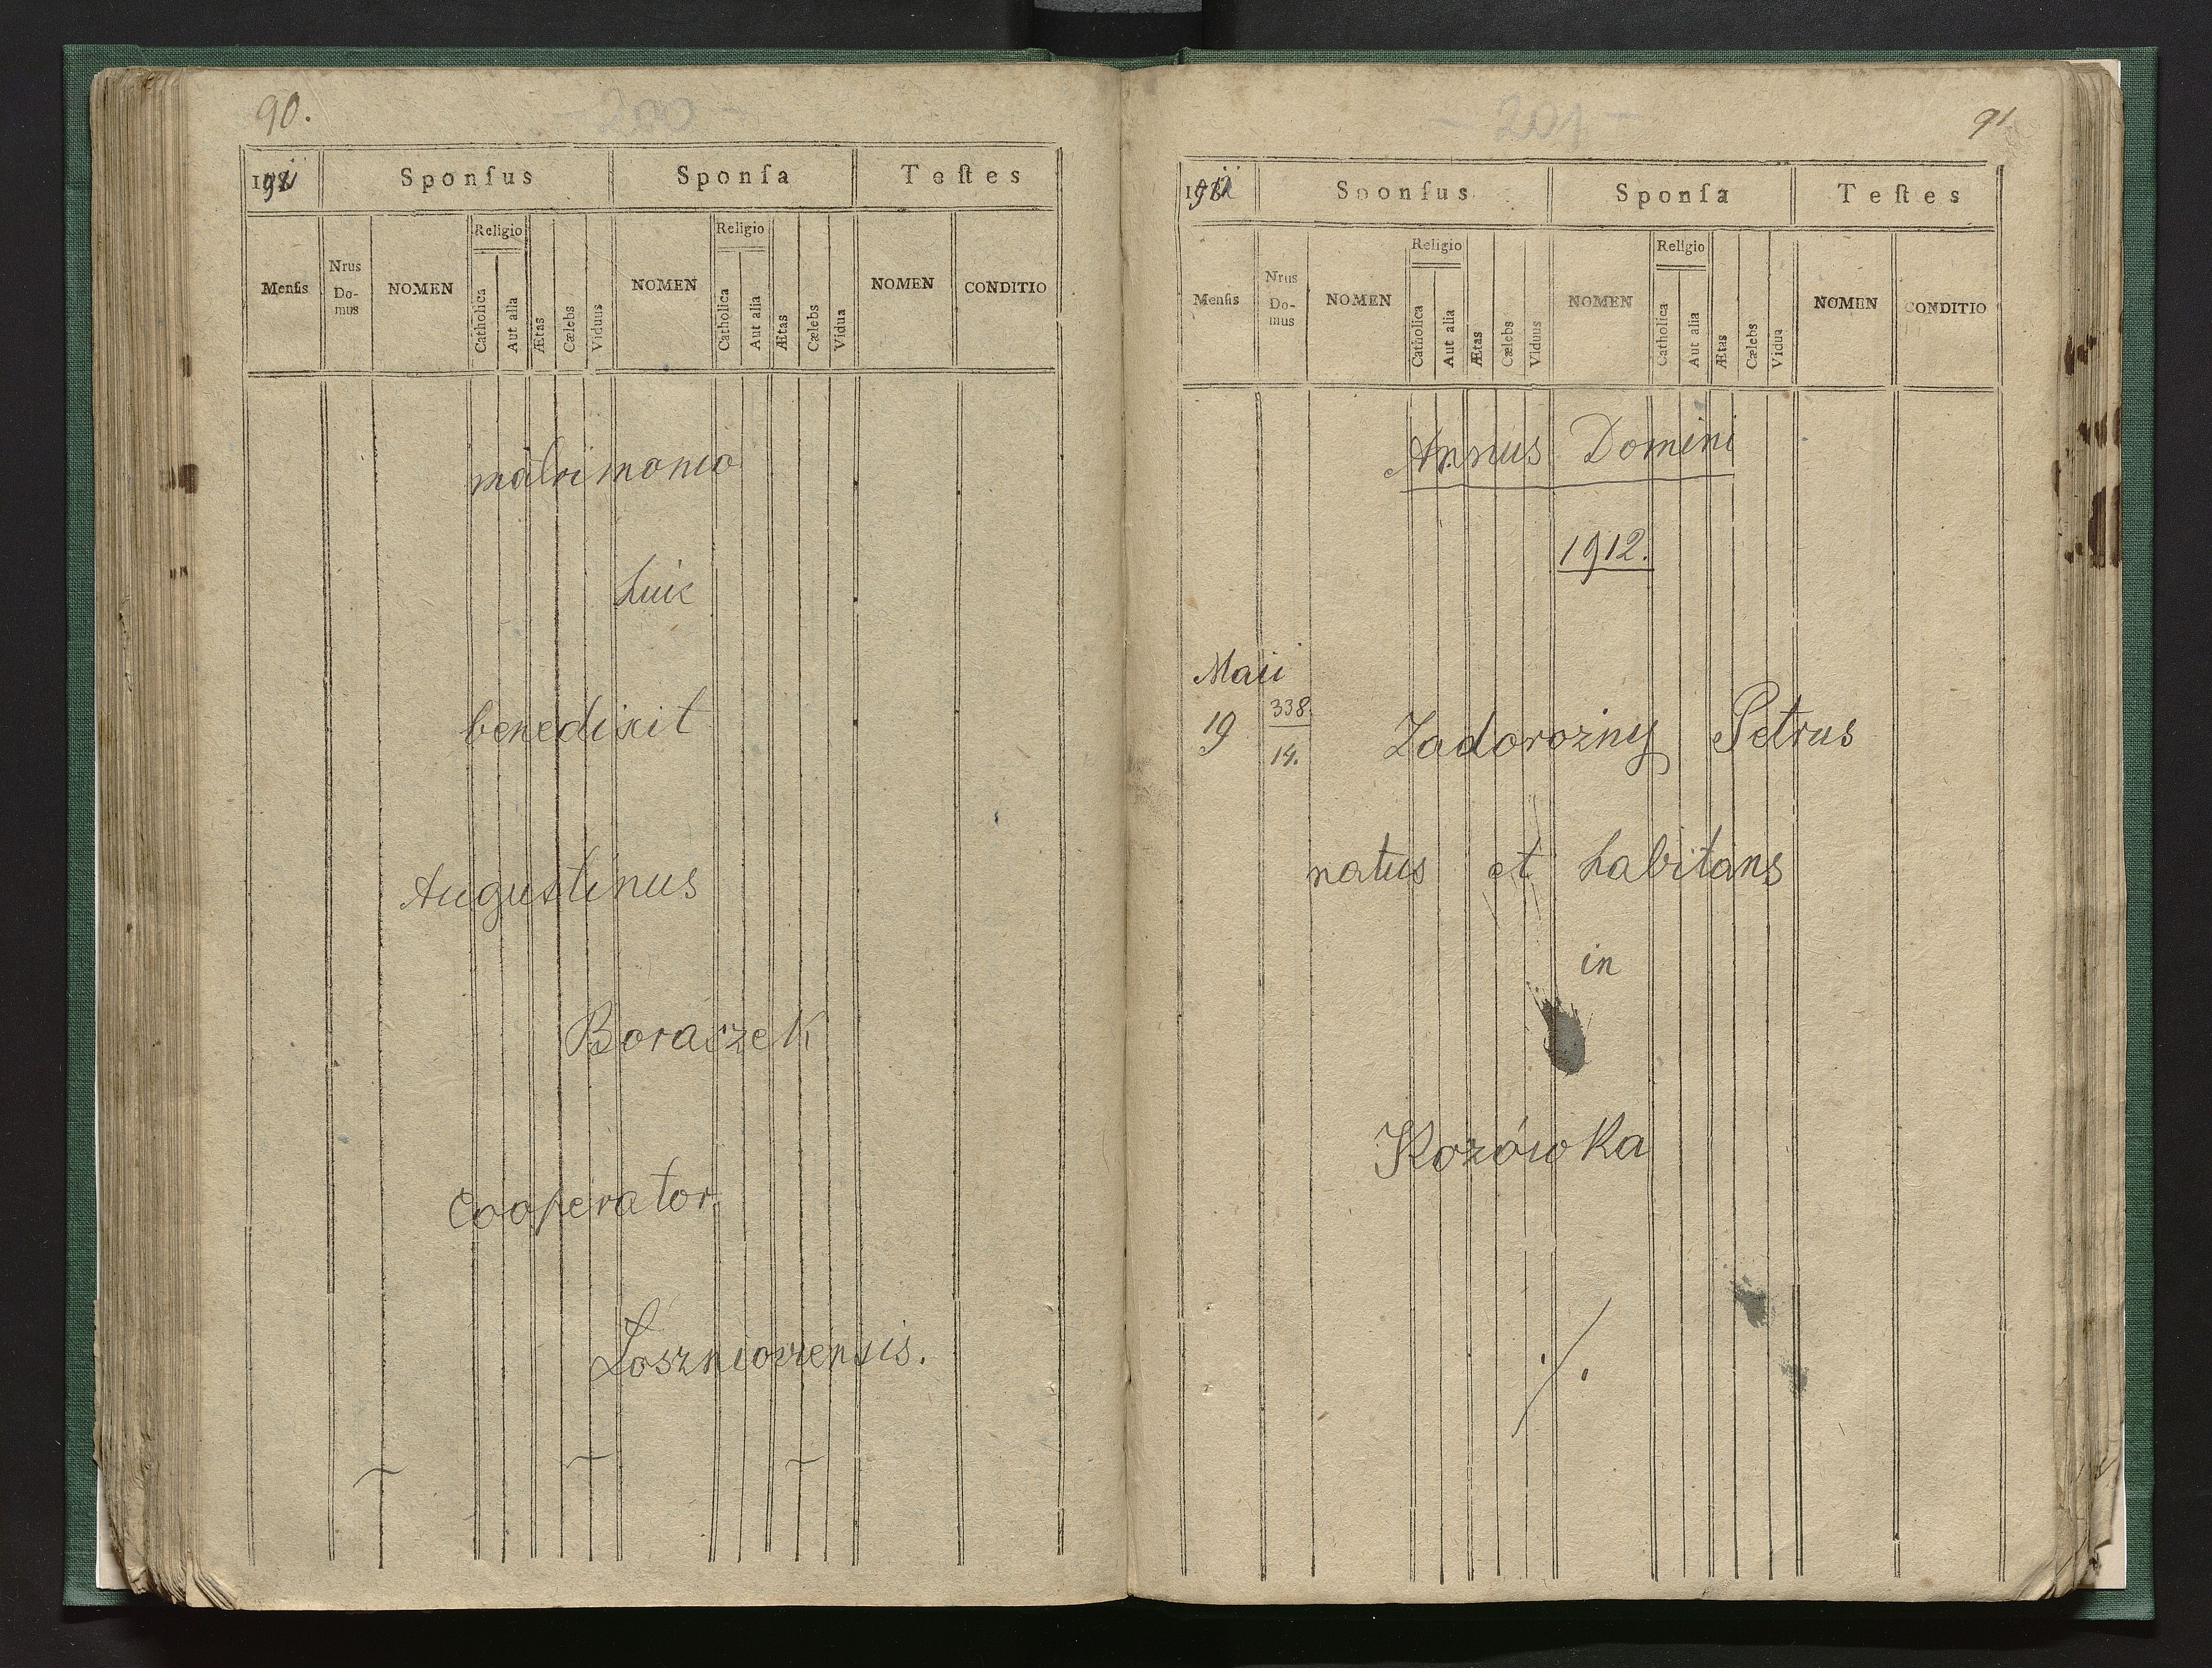 90.
- 200 -
1911
Sponſus
Sponſa
Teſtes
Menſis
Nrus Do-mus
NOMEN
Religio
Catholica
Aut alia
Ætas
Cælebs
Viduus
NOMEN
Religio
Catholica
Aut alia
Ætas
Cælebs
Vidua
NOMEN
CONDITIO
matrimonio
huic
benedixit
Augustinus
Boraczek
cooperator
Łoszniowiensis.
- 201 -
91
1912
Sponſus
Sponſa
Teſtes
Menſis
Nrus Do-mus
NOMEN
Religio
Catholica
Aut alia
Ætas
Cælebs
Viduus
NOMEN
Religio
Catholica
Aut alia
Ætas
Cælebs
Vidua
NOMEN
CONDITIO
Annus Domini
1912.
Maii
19
338.
14.
Zadorożny Petrus
natus et habitans
in
Kozówka
./.